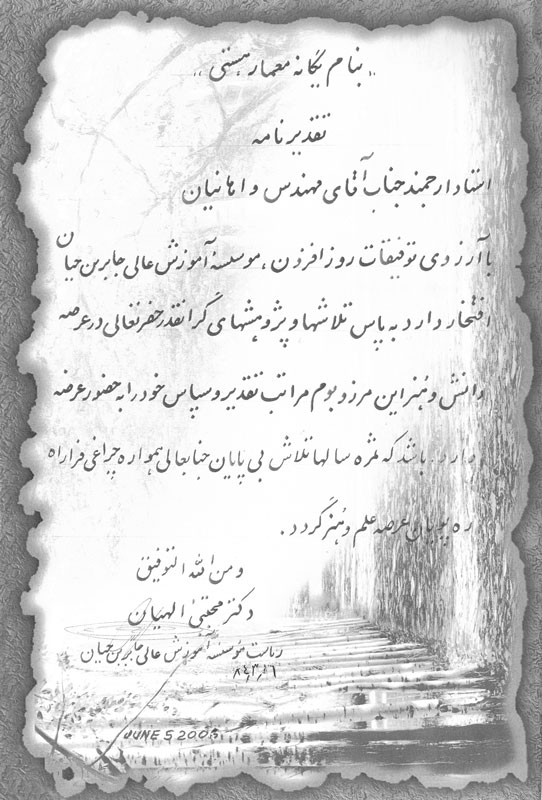 ,, بنام یگانه معمار هستی ,,
تقدیر نامه
استاد ارجمند جناب آقای مهندس واهانیان
با آرزوی توفیقات روز افزون ، موسسه آموزش عالی جابربن حیان
افتخار دارد به پاس تلاشها و پژوهشهای گرانقدر حضرتعالی در عرصه
دانش و هنر این مرز و بوم مراتب تقدیر و سپاس خود را به حضور عرضه
دارد. باشد که ثمره سالها تلاش بی پایان جنابعالی همواره چراغی فرا راه
ره پویان عرصه علم و هنر گردد .
و من الله التوفیق
دکتر مجتبی الهیان
ریاست موسسه آموزش عالی جابربن حیان
JUNE 5 2005